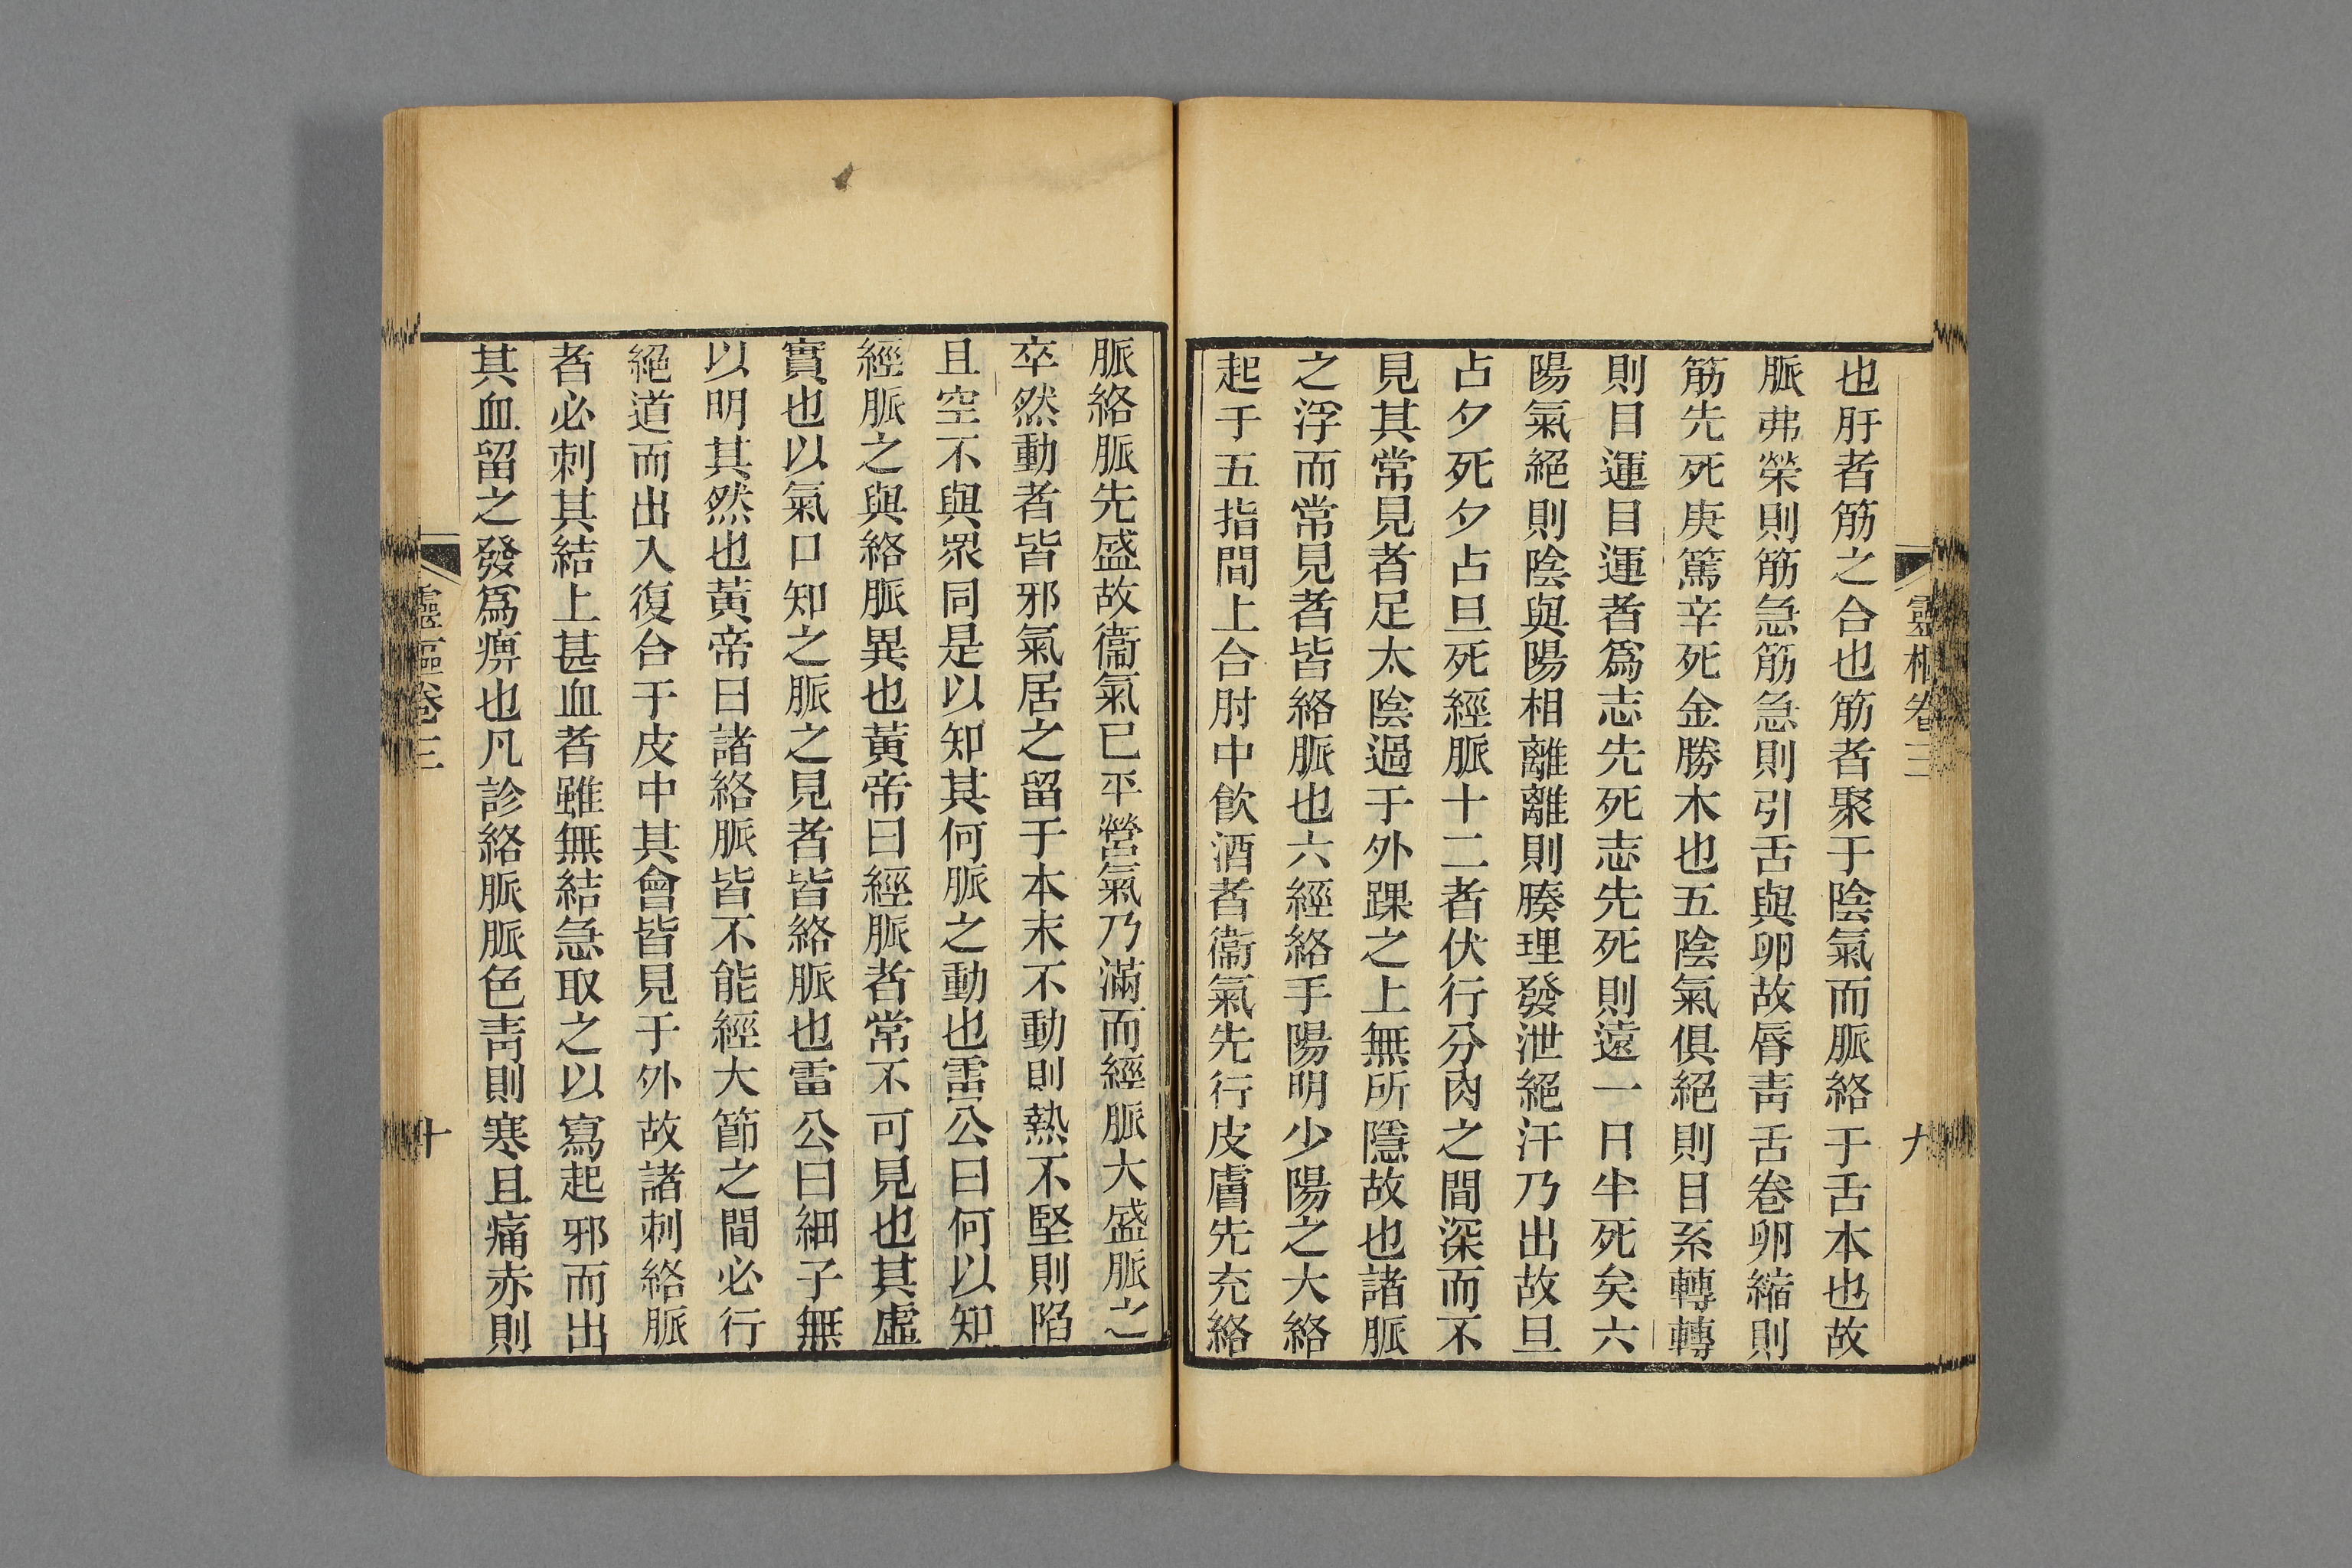 靈樞卷三 九
也肝者筋之合也筋者聚于陰氣而脈絡于舌本也故
脈弗榮則筋急筋急則引舌與卵故脣靑舌卷卵縮則
筋先死庚篤辛死金勝木也五陰氣俱絕則目系轉轉
則目運目運者爲志先死志先死則遠一日半死矣六
陽氣絕則陰與陽相離離則腠理發泄絕汗乃出故旦
占夕死夕占旦死經脈十二者伏行分肉之間深而不
見其常見者足太陰過于外踝之上無所隱故也諸脈
之浮而常見者皆絡脈也六經絡手陽明少陽之大絡
起于五指間上合肘中飮酒者衞氣先行皮膚先充絡
脈絡脈先盛故衞氣已平營氣乃滿而經脈大盛脈之
卒然動者皆邪氣居之留于本末不動則熱不堅則陷
且空不與眾同是以知其何脈之動也雷公曰何以知
經脈之與絡脈異也黃帝曰經脈者常不可見也其虛
實也以氣口知之脈之見者皆絡脈也雷公曰細子無
以明其然也黃帝曰諸絡脈皆不能經大節之間必行
絕道而出入復合于皮中其會皆見于外故諸刺絡脈
者必刺其結上甚血者雖無結急取之以寫起邪而出
其血留之發爲痹也凡診絡脈脈色靑則寒且痛赤則
靈樞卷三 十